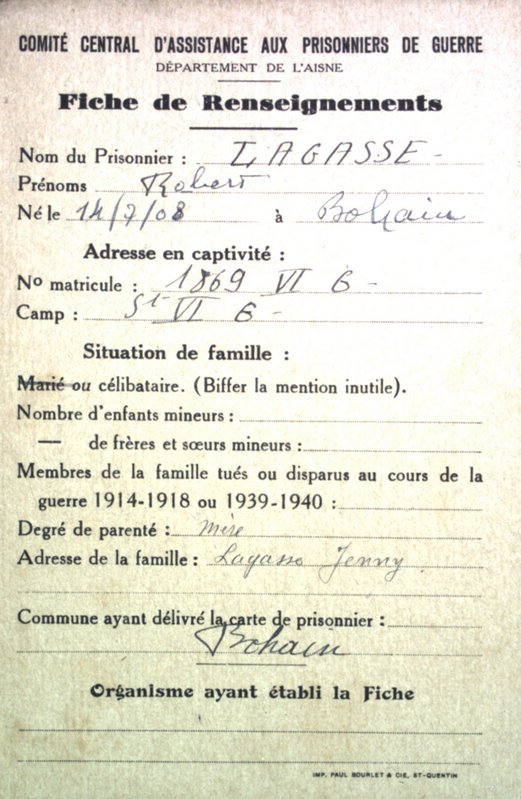 COMITÉ CENTRAL D'ASSISTANCE AUX PRISONNIERS DE GUERRE
DÉPARTEMENT DE L'AISNE
Fiche de Renseignements
Nom du Prisonnier : LAGASSE -
Prénoms Robert
Né le 14/7/08 à Bohain
Adresse en captivité :
No matricule : 1869 VI G -
Camp : St VI G -
Situation de famille :
Marié ou célibataire. (Biffer la mention inutile).
Nombre d'enfants mineurs :
— de frères et sœurs mineurs :
Membres de la famille tués ou disparus au cours de la
guerre 1914-1918 ou 1939-1940 :
Degré de parenté : mère
Adresse de la famille : Lagasse Jenny
Commune ayant délivré la carte de prisonnier :
Bohain
Organisme ayant établi la Fiche
IMP. PAUL BOURLET & CIE, ST-QUENTIN